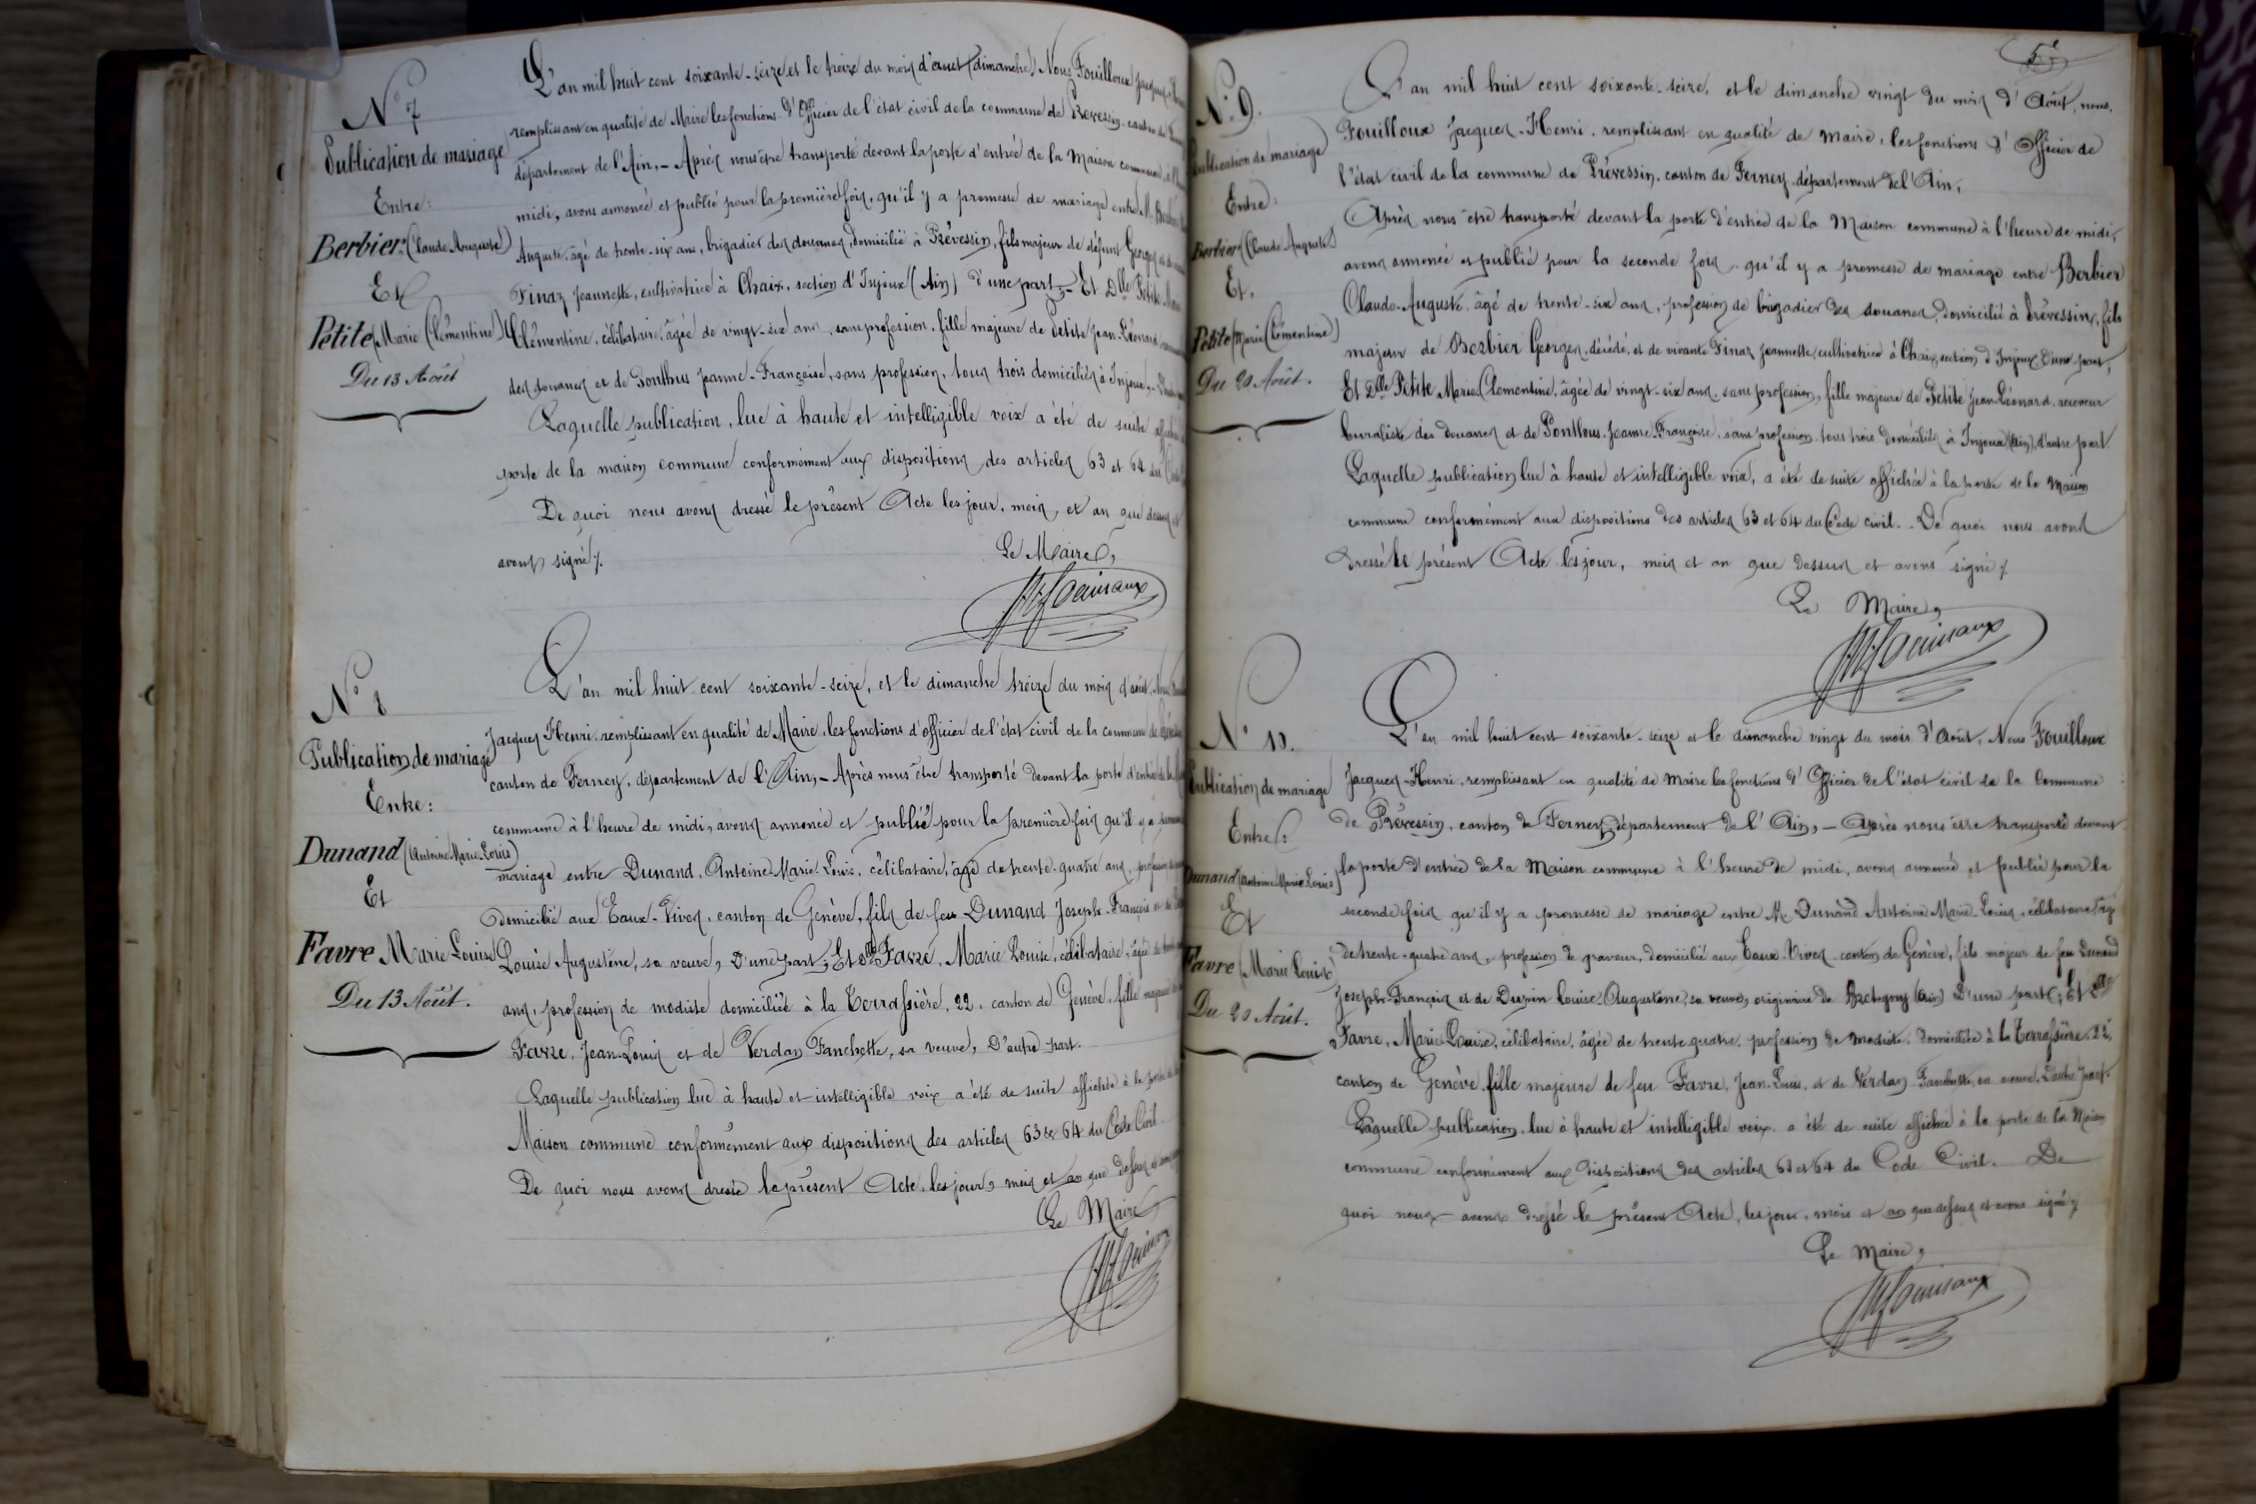 N° 7
Publication de mariage
Entre:
Berbier (Claude Auguste)
Et
Petite (Marie Clémentine)
Du 13 Août
L'an mil huit cent soixante-seize et le treize du mois d'août (dimanche) Nous Fouilloux Jacques
remplissant en qualité de Maire les fonctions d'Officier de l'état civil de la commune de Prévessin, canton de
département de l'Ain, - Après nous être transporté devant la porte d'entrée de la Maison commune
midi, avons annoncé et publié pour la première fois, qu'il y a promesse de mariage entre M. Berbier
Auguste, âgé de trente-six ans, brigadier des douanes, domicilié à Prévessin, fils majeur de défunt Georges
Finaz Jeannette, cultivatrice à Chaix, section d'Injoux (Ain) d'une part, - Et Dlle Petite
Clémentine, célibataire, âgée de vingt-six ans, sans profession, fille majeure de Petite Jean-Léonard
des douanes et de Ponthus Jeanne-Françoise, sans profession, tous trois domiciliés à Injoux,
Laquelle publication, lue à haute et intelligible voix a été de suite
porte de la maison commune conformément aux dispositions des articles 63 et 64 du
De quoi nous avons dressé le présent Acte les jour, mois, et an que dessus et
avons signé ./.
Le Maire,
N° 8
Publication de mariage
Entre:
Dunand (Antoine Marie Louis)
Et
Favre Marie Louise
Du 13 Août.
L'an mil huit cent soixante-seize, et le dimanche treize du mois d'août
Jacques Henri, remplissant en qualité de Maire, les fonctions d'officier de l'état civil de la commune de
canton de Ferney, département de l'Ain, - Après nous être transporté devant la porte d'entrée de la
commune à l'heure de midi, avons annoncé et publié pour la première fois qu'il y a
mariage entre Dunand, Antoine Marie Louis, célibataire, âgé de trente-quatre ans,
domicilié aux Eaux-Vives, canton de Genève, fils de feu Dunand Joseph-François et de
Louise Augustine, sa veuve, D'une part, Et Dlle Favre, Marie Louise, célibataire, âgée de
ans, profession de modiste domiciliée à la Terrassière, 22, canton de Genève, fille
Favre, Jean-Louis et de Verdan Fanchette, sa veuve, D'autre part.
Laquelle publication lue à haute et intelligible voix a été de suite affichée à la porte de la
Maison commune conformément aux dispositions des articles 63 & 64 du Code Civil.
De quoi nous avons dressé le présent Acte, les jour, mois et an que dessus et
Le Maire
5e
N° 9.
Publication de mariage
Entre:
Berbier (Claude Auguste)
Et,
Petite (Marie Clémentine)
Du 20 Août.
L'an mil huit cent soixante-seize, et le dimanche vingt du mois d'Août, nous,
Fouilloux Jacques-Henri, remplissant en qualité de Maire, les fonctions d'Officier de
l'état civil de la commune de Prévessin, canton de Ferney, département de l'Ain,
Après nous être transporté devant la porte d'entrée de la Maison commune à l'heure de midi,
avons annoncé et publié pour la seconde fois, qu'il y a promesse de mariage entre Berbier
Claude-Auguste, âgé de trente-six ans, profession de brigadier des douanes, domicilié à Prévessin, fils
majeur de Berbier Georges, décédé, et de vivante Finaz Jeannette, cultivatrice à Chaix, section d'Injoux, D'une part,
Et Dlle Petite Marie Clémentine, âgée de vingt-six ans, sans profession, fille majeure de Petite Jean-Léonard, receveur
buraliste des douanes et de Ponthus Jeanne-Françoise, sans profession, tous trois domiciliés à Injoux (Ain), d'autre part.
Laquelle publication lue à haute et intelligible voix, a été de suite affichée à la porte de la Maison
commune conformément aux dispositions des articles 63 et 64 du Code civil. - De quoi nous avons
dressé le présent Acte les jour, mois et an que dessus et avons signé ./.
Le Maire,
N° 10.
Publication de mariage
Entre:
Dunand (Antoine Marie Louis)
Et
Favre (Marie Louise)
Du 20 Août.
L'an mil huit cent soixante-seize et le dimanche vingt du mois d'Août, Nous Fouilloux
Jacques-Henri, remplissant en qualité de Maire les fonctions d'Officier de l'état civil de la Commune
de Prévessin, canton de Ferney, département de l'Ain, - Après nous être transporté devant
la porte d'entrée de la Maison commune à l'heure de midi, avons annoncé et publié pour la
seconde fois qu'il y a promesse de mariage entre M. Dunand Antoine Marie-Louis, célibataire, âgé
de trente-quatre ans, profession de graveur, domicilié aux Eaux-Vives, canton de Genève, fils majeur de feu Dunand
Joseph-François et de Louise Augustine, sa veuve, originaire de (Ain) D'une part; Et Dlle
Favre, Marie Louise, célibataire, âgée de trente-quatre, profession de modiste, domiciliée à la Terrassière, 22,
canton de Genève, fille majeure de feu Favre, Jean-Louis, et de Verdan Fanchette, sa veuve, D'autre part.
Laquelle publication, lue à haute et intelligible voix, a été de suite affichée à la porte de la Maison
commune conformément aux dispositions des articles 63 et 64 du Code Civil. De
quoi nous avons dressé le présent Acte, les jour, mois et an que dessus et avons signé ./.
Le Maire,